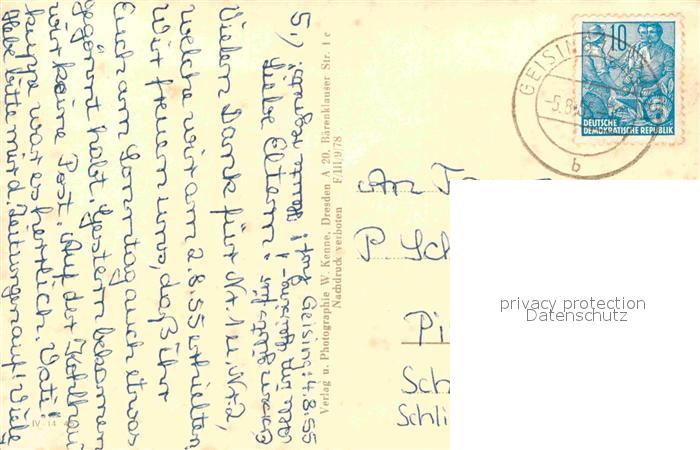 5.) Geising, 4.8.55
Liebe Eltern!
Vielen Dank für Nr. 1 u. Nr. 2,
welche wir am 2.8.55 erhielten.
Wir freuen uns, daß ihr
Euch am Sonntag auch etwas
gegönnt habt. Gestern bekamen
wir keine Post. Auf der Kohlhau
kuppe war es herrlich. Vati!
Hebe bitte mir d. Zeitungen auf! Viele
IV-14
Verlag u. Photographie W. Kenne, Dresden A 20, Bärenklauser Str. 1 c
Nachdruck verboten F/III/9/78
GEISING
-5.8.
b
10
DEUTSCHE
DEMOKRATISCHE REPUBLIK
An
P. Sch
Pi
Sch
Schli
privacy protection
Datenschutz